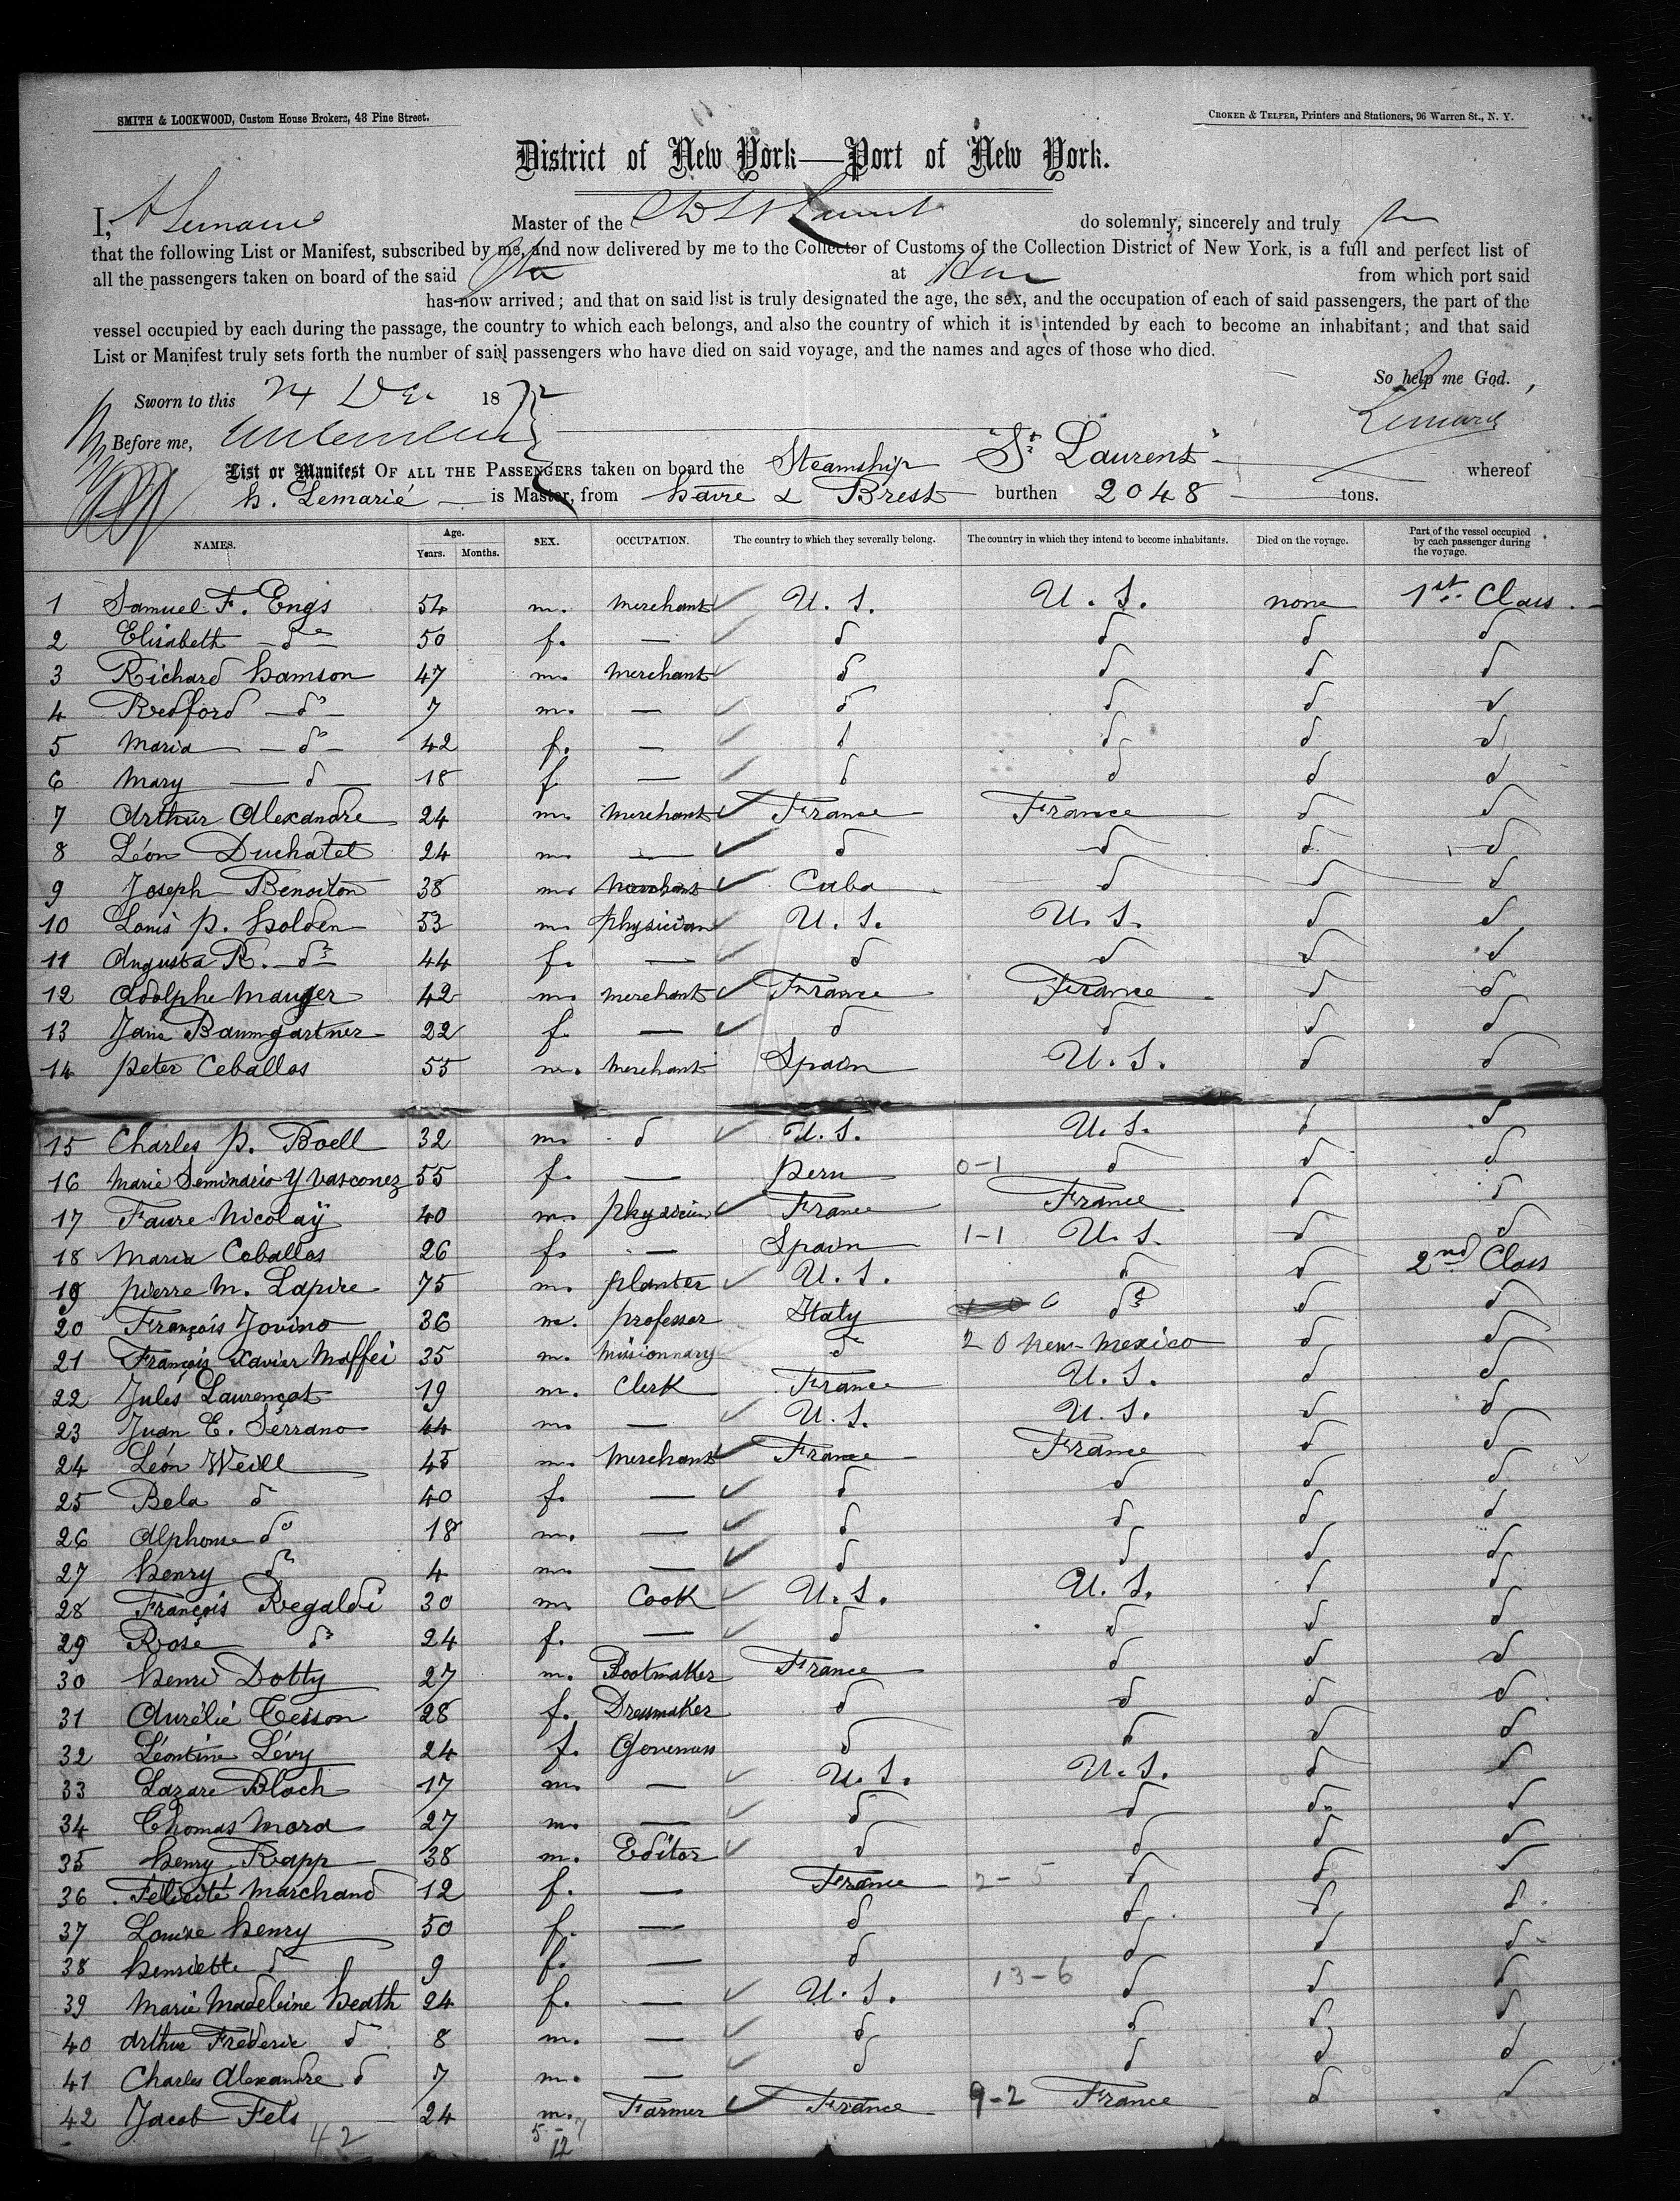 SMITH & LOCKWOOD, Custom House Brokers, 48 Pine Street.
CROKER & TELFER, Printers and Stationers, 96 Warren St., N. Y.
District of New York—Port of New York.
I, Master of the do solemnly, sincerely and truly
that the following List or Manifest, subscribed by me, and now delivered by me to the Collector of Customs of the Collection District of New York, is a full and perfect list of
all the passengers taken on board of the said at from which port said
has now arrived; and that on said list is truly designated the age, the sex, and the occupation of each of said passengers, the part of the
vessel occupied by each during the passage, the country to which each belongs, and also the country of which it is intended by each to become an inhabitant; and that said
List or Manifest truly sets forth the number of said passengers who have died on said voyage, and the names and ages of those who died.
So help me God.
Sworn to this 24 Dec 1872
Before me,
List or Manifest OF ALL THE PASSENGERS taken on board the Steamship "St Laurent" whereof
H. Lemarié is Master, from Havre & Brest burthen 2048 tons.
NAMES. Age. Years. Months. SEX. OCCUPATION. The country to which they severally belong. The country in which they intend to become inhabitants. Died on the voyage. Part of the vessel occupied by each passenger during the voyage.
1 Samuel F. Engs 54 m. merchant U. S. U. S. none 1st Class
2 Elisabeth do 50 f. — d d d d
3 Richard Hamson 47 m. merchant d d d d
4 Bedford do 7 m. — d d d d
5 Maria do 42 f. — d d d d
6 Mary d 18 f. — d d d d
7 Arthur Alexandre 24 m. merchant France France d d
8 Léon Duchatet 24 m. — d d d d
9 Joseph Benoiton 38 m. merchant Cuba d d d
10 Louis P. Holden 53 m. physician U. S. U. S. d d
11 Augusta R. do 44 f. — d d d d
12 Adolphe Mauger 42 m. merchant France France d d
13 Jane Baumgartner 22 f. — d d d d
14 Peter Ceballos 55 m. merchant Spain U. S. d d
15 Charles P. Boell 32 m. d U. S. U. S. d d
16 Marie Seminario Y Vasconez 55 f. — Peru 0-1 d d d
17 Faure Nicolaÿ 40 m. physician France France d d
18 Maria Ceballos 26 f. — Spain 1-1 U. S. d d
19 Pierre M. Lapire 75 m. planter U. S. d d 2nd Class
20 François Jovino 36 m. professor Italy do d d
21 François Xavier Maffei 35 m. missionnary d 2 0 New-Mexico d d
22 Jules Laurençot 19 m. Clerk France U. S. d d
23 Juan E. Serrano 44 m. — U. S. U. S. d d
24 Léon Weill 45 m. merchant France France d d
25 Bela d 40 f. — d d d d
26 Alphonse do 18 m. — d d d d
27 Henry do 4 m. — d d d d
28 François Regaldi 30 m. Cook U. S. U. S. d d
29 Rose do 24 f. — d d d d
30 Henri Dotty 27 m. Bootmaker France d d d
31 Aurélie Tesson 28 f. Dressmaker d d d d
32 Léontine Lévy 24 f. Governess d d d d
33 Lazare Bloch 17 m. — U. S. U. S. d d
34 Thomas Mora 27 m. — d d d d
35 Henry Rapp 38 m. Editor d d d d
36 Felicité Marchand 12 f. — France 2-5 d d d
37 Louise Henry 50 f. — d d d d
38 Henriette d 9 f. — d d d d
39 Marie Madeleine Heath 24 f. — U. S. 13-6 d d d
40 Arthur Fréderic d 8 m. — d d d d
41 Charles Alexandre d 7 m. — d d d d
42 Jacob Fels 24 m. Farmer France 9-2 France d d
42 5-7
12